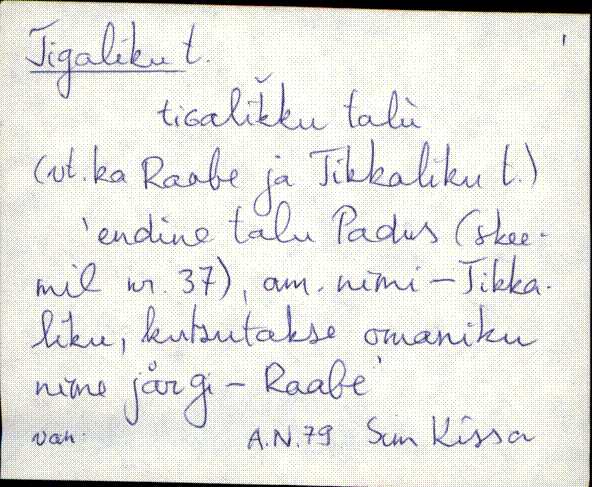 Tigaliku t.
tiɢalikku talù
(vt. ka Raabe ja Tikkaliku t.)
'endine talu Padus (skee-
mil nr. 37), am. nimi – Tikka-
liku, kutsutakse omaniku
nime järgi – Raabe'
van. A.N.79 Sim Kissa